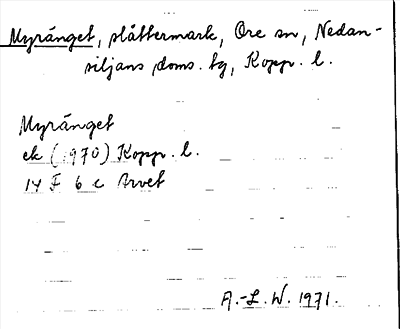 Myränget, slåttermark, Ore sn, Nedan-
siljans doms. tg, Kopp. l.
Myränget
ek (1970) Kopp. l.
14 F 6 c Arvet
A.-L. W. 1971.